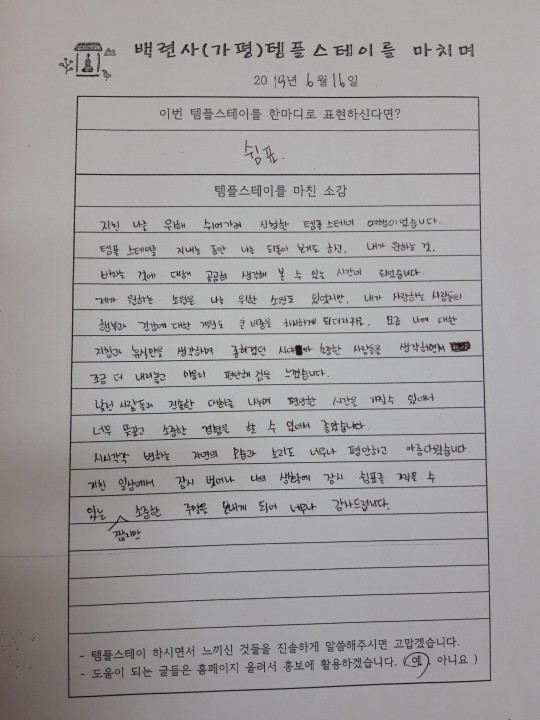 백련사(가평)템플스테이를 마치며
2019년 6월 16일
이번 템플스테이를 한마디로 표현하신다면?
쉼표.
템플스테이를 마친 소감
지친 나를 위해 쉬어가려 신청한 템플스테이 여행이었습니다.
템플 스테이를 지내는 동안 나를 되돌아 보기도 하고, 내가 원하는 것,
바라는 것에 대해 곰곰히 생각해 볼 수 있는 시간이 되었습니다.
제가 원하는 소원은 나를 위한 소원도 있었지만, 내가 사랑하는 사람들의
행복과 건강에 대한 개원도 큰 비중을 차지하게 되더라구요. 요즘 나에 대한
지침과 생각하며 좁혀졌던 소중한 사람들을 생각하면서
조금 더 내려놓고 마음이 편안해 짐을 느꼈습니다.
낯선 사람들과 진솔한 대화를 나누며 편안한 시간을 가질수 있어서
너무 뜻깊고 소중한 경험을 할 수 있어서 좋았습니다.
시시각각 변하는 자연의 모습과 소리도 너무나 편안하고 아름다웠습니다.
지친 일상에서 잠시 벗어나 나의 생활에 잠시 쉼표를 찍을 수
있는 소중한 주말을 보내게 되어 너무나 감사드립니다.
짧지만
- 템플스테이 하시면서 느끼신 것들을 진솔하게 말씀해주시면 고맙겠습니다.
- 도움이 되는 글들은 홈페이지 올려서 홍보에 활용하겠습니다. ( 예, 아니요 )